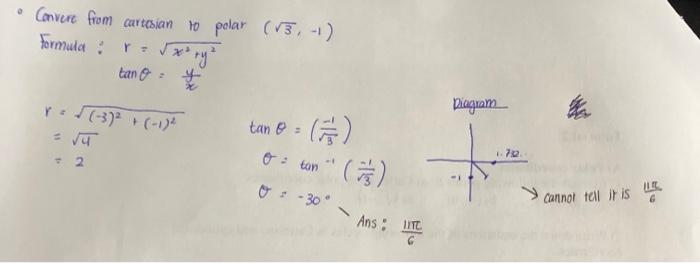 • Convert from cartesian to polar (√3, -1)
Formula : r = √x² + y²
tan θ = y/x
r = √(-3)² + (-1)²
= √4
= 2
tan θ = (-1/√3)
θ = tan⁻¹ (-1/√3)
θ = -30°
Ans : 11π/6
Diagram
1.732..
-1
→ cannot tell it is 11π/6